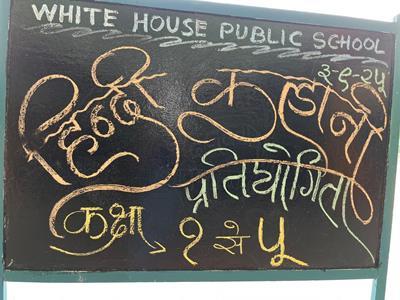 WHITE HOUSE PUBLIC SCHOOL
३-९-२५
हिन्दी कहानी
प्रतियोगिता
कक्षा → १ से ५